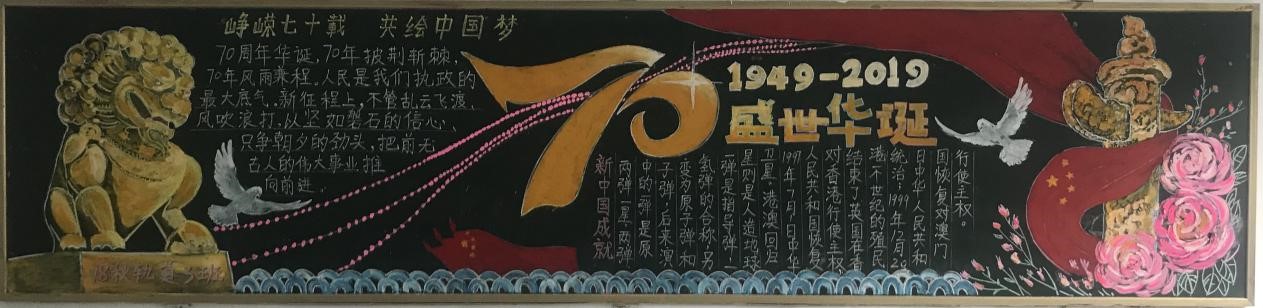 峥嵘七十载 共绘中国梦
70周年华诞,70年披荆斩棘,
70年风雨乘程。人民是我们执政的
最大底气。新征程上,不管乱云飞渡、
风吹浪打,从坚如磐石的信心、
只争朝夕的劲头,把前无
古人的伟大事业推
向前进。
70
1949-2019
盛世华诞
新中国成就
两弹一星:两弹
中的弹是原
子弹,后来演
变为原子弹和
氢弹的合称,另
一弹是指导弹;一
星则是人造地球
卫星。港澳回归
1997年7月1日中华
人民共和国恢复
对香港行使主权,
结束了英国在香
港一个世纪的殖民
统治;1999年12月20
日中华人民共和
国恢复对澳门
行使主权。
18秋轨道3班